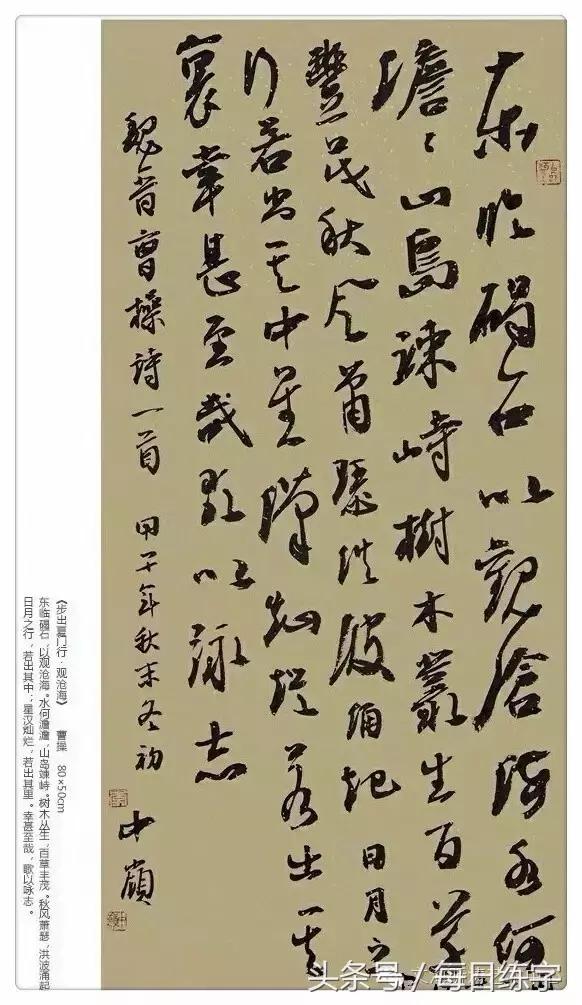 東臨碣石以觀滄海水何
澹々山島竦峙樹木叢生百草
豐茂秋風蕭瑟洪波涌起日月之
行若出其中星漢燦爛若出其
裏幸甚至哉歌以詠志
魏晋曹操詩一首 甲午年秋末冬初
中嶺
《步出夏门行·观沧海》 曹操 80×50cm
东临碣石，以观沧海。水何澹澹，山岛竦峙。树木丛生，百草丰茂。秋风萧瑟，洪波涌起
日月之行，若出其中；星汉灿烂，若出其里。幸甚至哉，歌以咏志。
头条号／每日练字